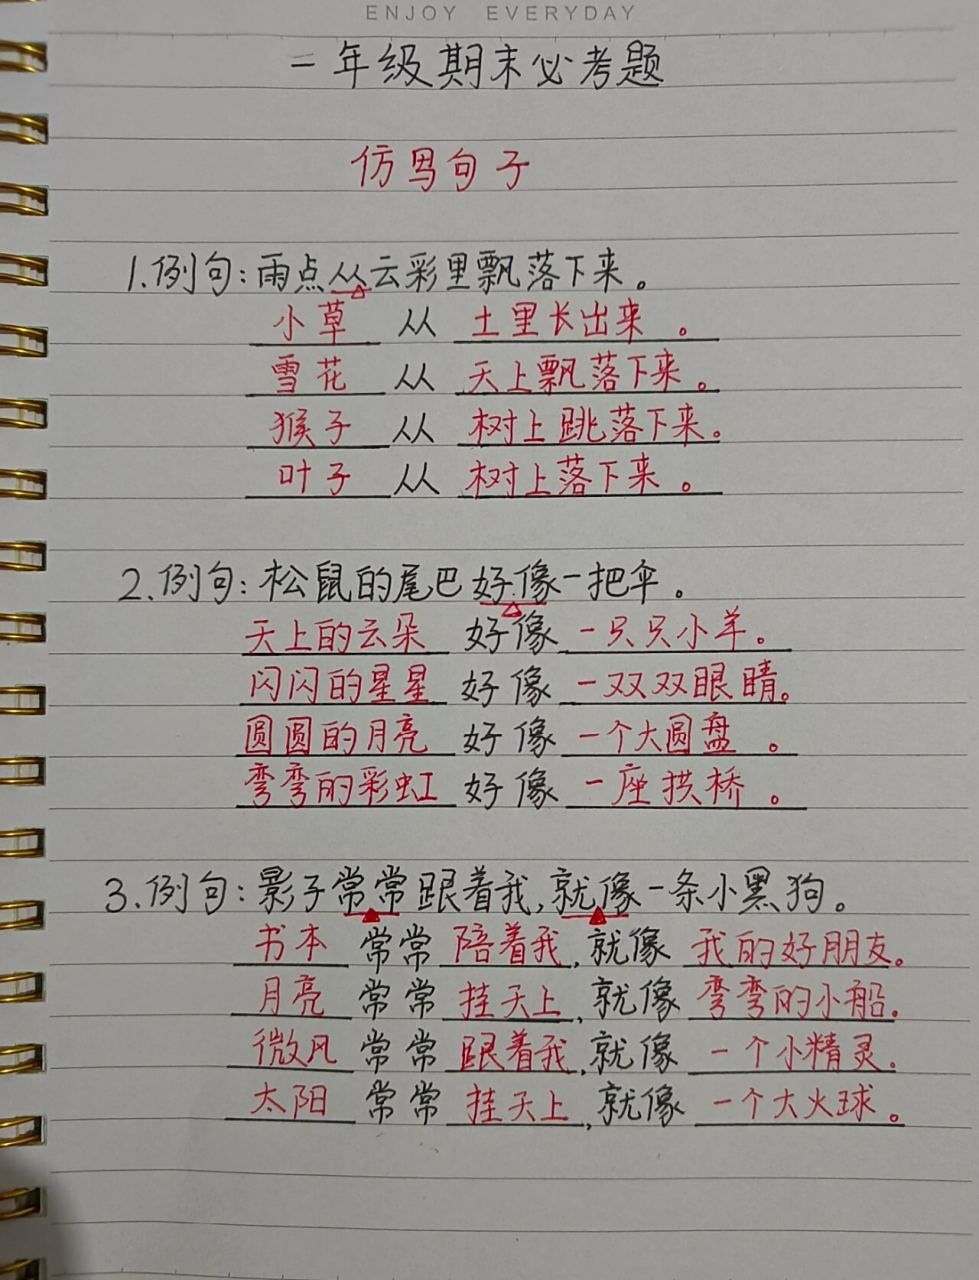 ENJOY EVERYDAY
一年级期末必考题
仿写句子
1.例句:雨点从云彩里飘落下来。
小草 从 土里长出来 。
雪花 从 天上飘落下来。
猴子 从 树上跳落下来。
叶子 从 树上落下来 。
2.例句:松鼠的尾巴好像一把伞。
天上的云朵 好像 一只只小羊。
闪闪的星星 好像 一双双眼睛。
圆圆的月亮 好像 一个大圆盘 。
弯弯的彩虹 好像 一座拱桥 。
3.例句:影子常常跟着我,就像一条小黑狗。
书本 常常 陪着我,就像 我的好朋友。
月亮 常常 挂天上,就像 弯弯的小船。
微风 常常 跟着我,就像 一个小精灵。
太阳 常常 挂天上,就像 一个大火球。